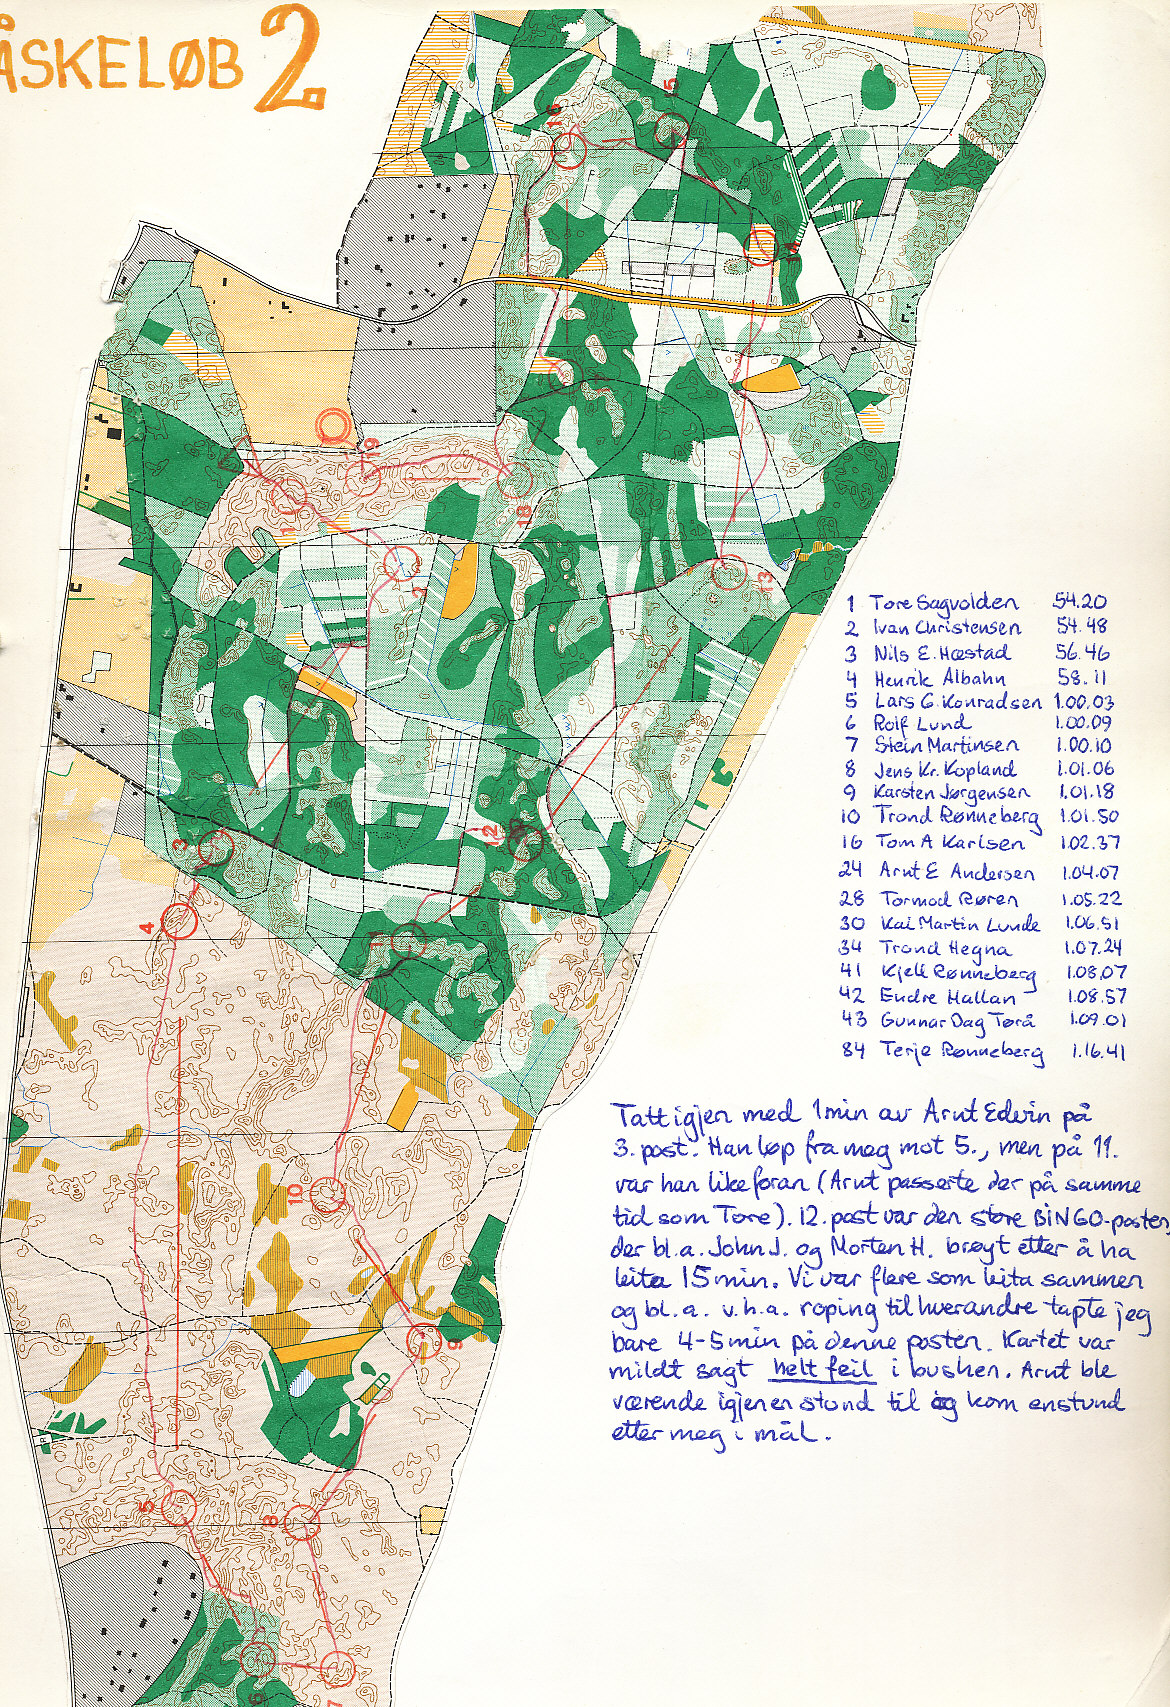 ÅSKELØB 2
16
15
14
19
1
18
2
13
3
12
4
11
10
9
5
8
6
7
1 Tore Sagvolden 54.20
2 Ivan Christensen 54.48
3 Nils E. Hæstad 56.46
4 Henrik Albahn 58.11
5 Lars G. Konradsen 1.00.03
6 Rolf Lund 1.00.09
7 Stein Martinsen 1.00.10
8 Jens Kr. Kopland 1.01.06
9 Karsten Jørgensen 1.01.18
10 Trond Rønneberg 1.01.50
16 Tom A Karlsen 1.02.37
24 Arnt E Andersen 1.04.07
28 Tormod Røren 1.05.22
30 Kai Martin Lunde 1.06.51
34 Trond Hegna 1.07.24
41 Kjell Rønneberg 1.08.07
42 Endre Hallan 1.08.57
43 Gunnar Dag Torå 1.09.01
84 Terje Rønneberg 1.16.41
Tatt igjen med 1min av Arnt Edvin på
3. post. Han løp fra meg mot 5., men på 11.
var han like foran (Arnt passerte der på samme
tid som Tore). 12. post var den store BINGO-posten,
der bl.a. John J. og Morten H. brøyt etter å ha
leita 15min. Vi var flere som leita sammen
og bl.a. v.h.a. roping til hverandre tapte jeg
bare 4-5min på denne posten. Kartet var
mildt sagt helt feil i bushen. Arnt ble
værende igjen en stund til og kom en stund
etter meg i mål.